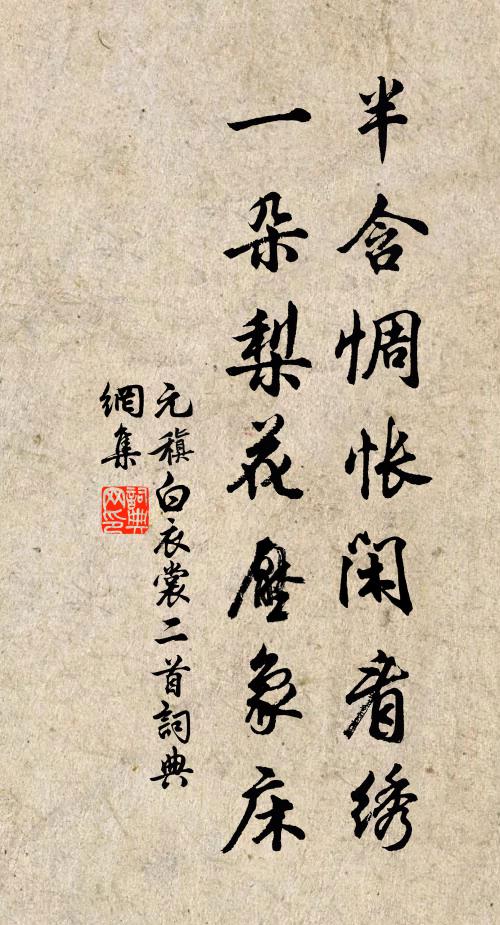 半含惆怅闲看绣
一朵梨花壓象床
元稹白衣裳二首詞典
網集
詞典网印